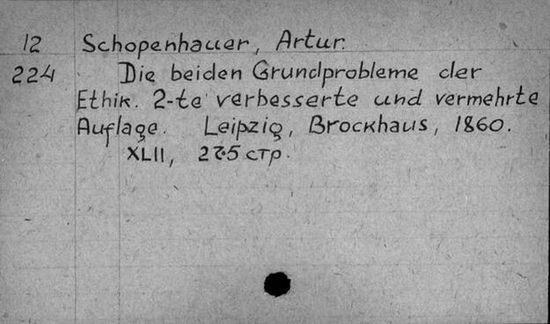 12 Schopenhauer, Artur.
224 Die beiden Grundprobleme der
Ethik. 2-te verbesserte und vermehrte
Auflage. Leipzig, Brockhaus, 1860.
XLII, 275 стр.